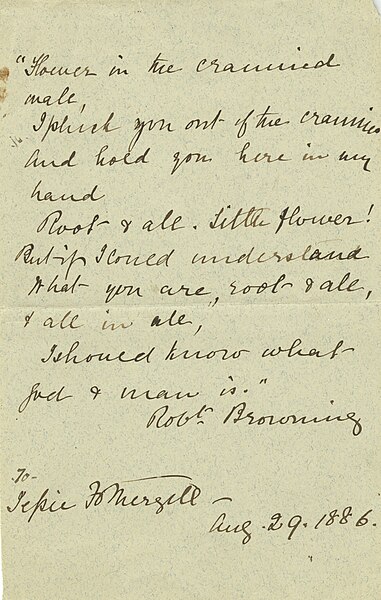 "Flower in the crannied
wall,
I pluck you out of the crannies
And hold you here in my
hand
Root & all. Little flower!
But if I could understand
What you are, root & all,
& all in all,
I should know what
God & man is."
Robt. Browning
To-
Aug. 29. 1886.